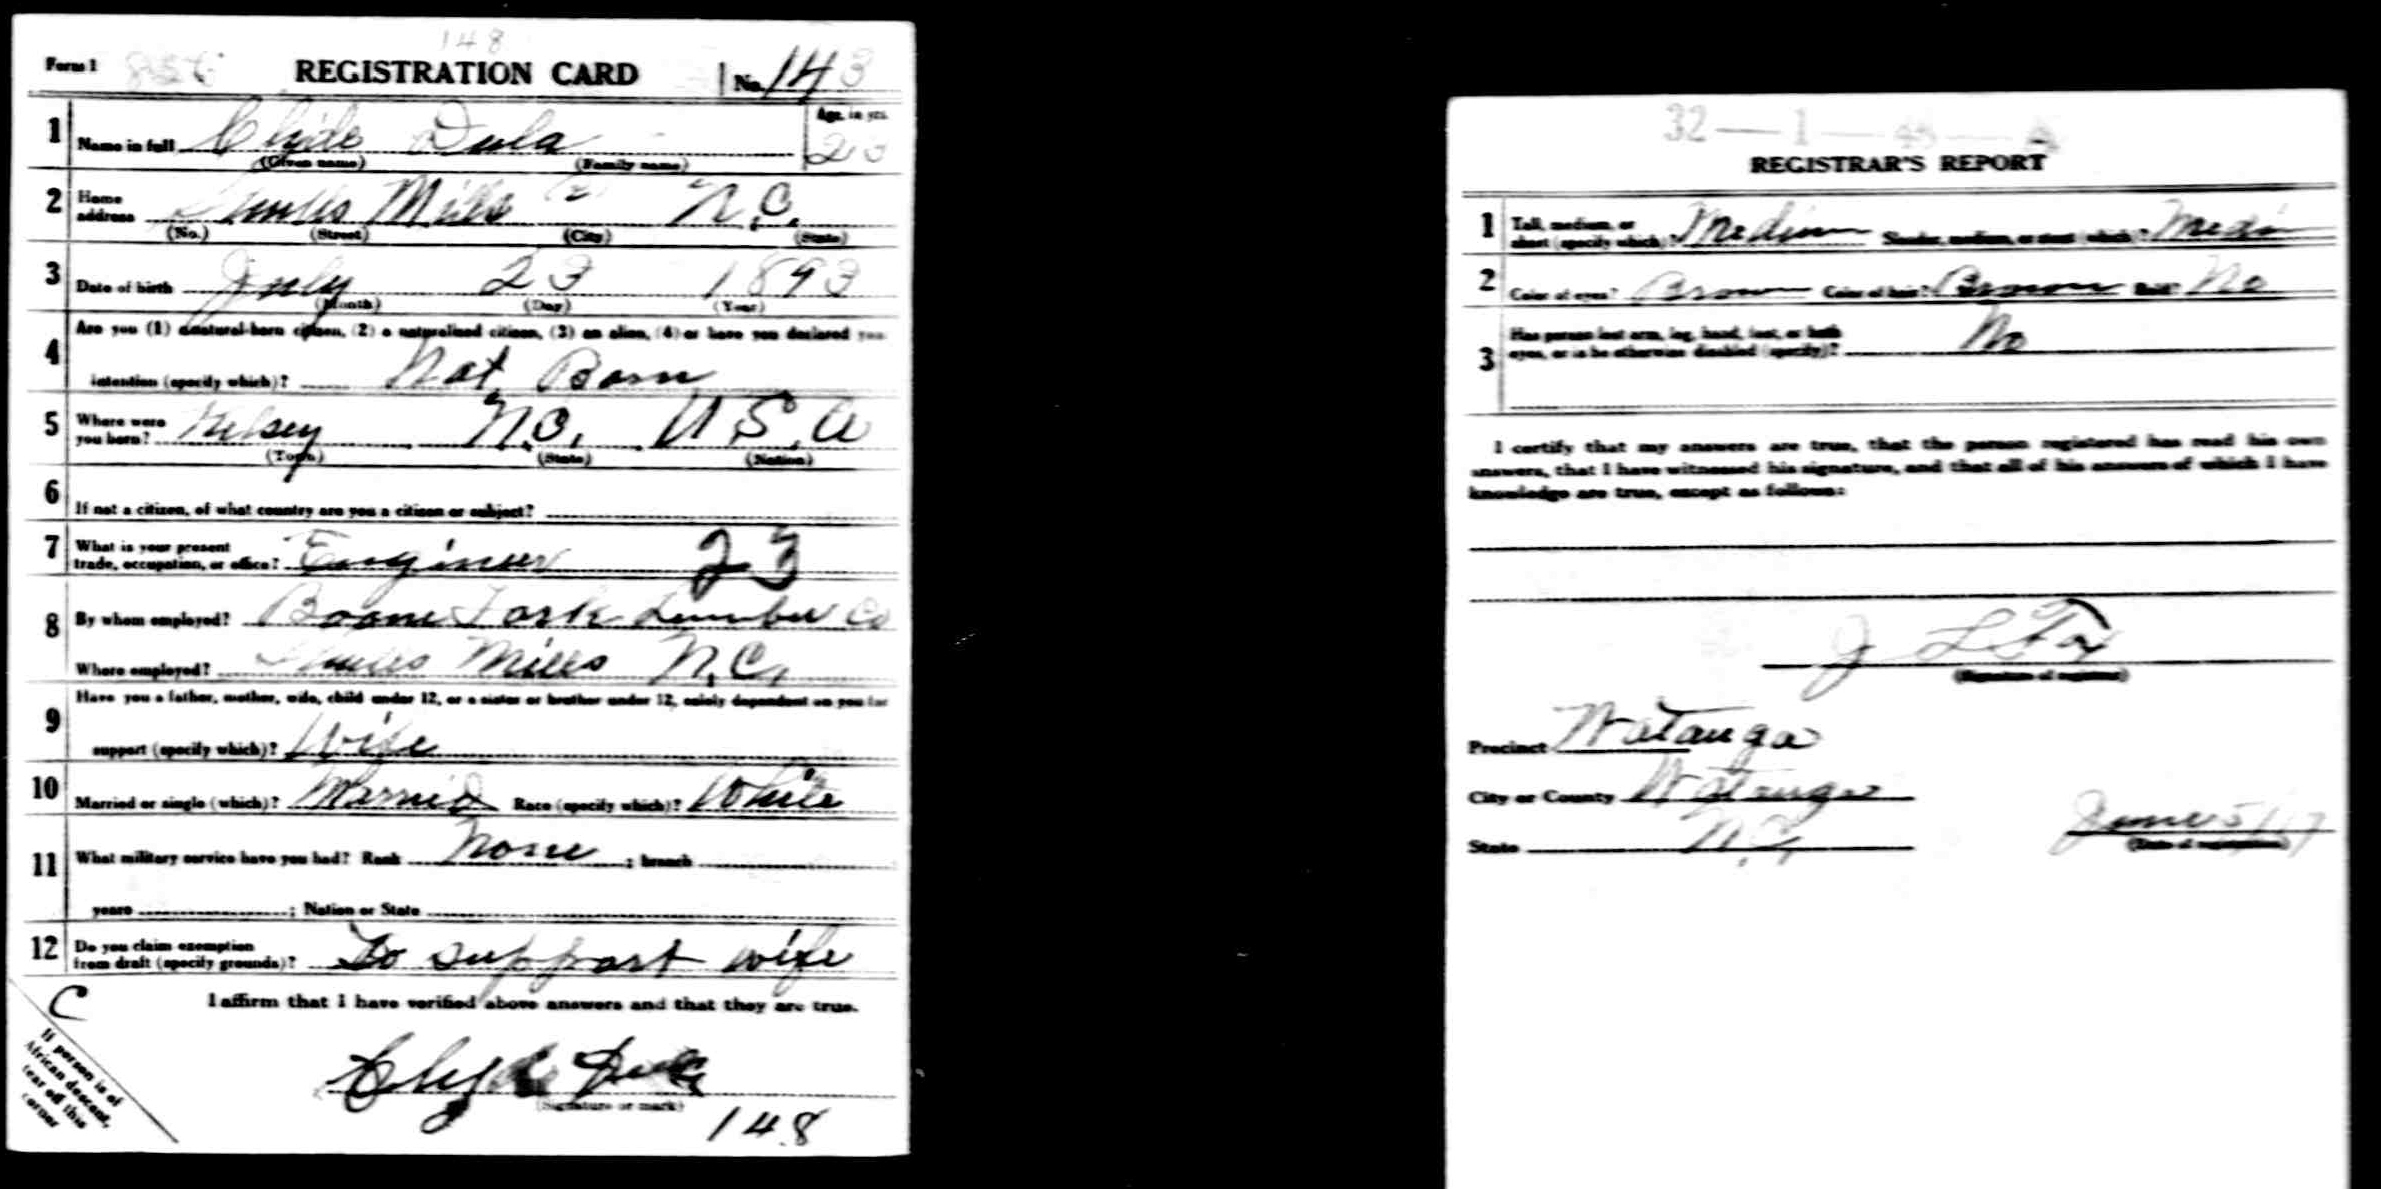 148
Form 1 856 REGISTRATION CARD No. 143
1 Name in full Clyde Dula Age, in yrs. 23
(Given name) (Family name)
2 Home address Mills N.C.
(No.) (Street) (City) (State)
3 Date of birth July 23 1893
(Month) (Day) (Year)
Are you (1) a natural-born citizen, (2) a naturalized citizen, (3) an alien, (4) or have you declared your
4 intention (specify which)? Nat. Born
5 Where were you born? Kelsey N.C. U.S.A
(Town) (State) (Nation)
6 If not a citizen, of what country are you a citizen or subject?
7 What is your present trade, occupation, or office? Engineer 23
8 By whom employed? Boone Fork Lumber Co
Where employed? Mills N.C.
Have you a father, mother, wife, child under 12, or a sister or brother under 12, solely dependent on you for
9 support (specify which)? Wife
10 Married or single (which)? Married Race (specify which)? White
11 What military service have you had? Rank None ; branch
years ; Nation or State
12 Do you claim exemption from draft (specify grounds)? To support wife
C I affirm that I have verified above answers and that they are true.
If person is of
African descent,
tear off this
corner
Clyde Dula
(Signature or mark)
148
32 — 1 — 45 — A
REGISTRAR'S REPORT
1 Tall, medium, or short (specify which)? Medium Slender, medium, or stout (which)? Medi
2 Color of eyes? Brown Color of hair? Brown Bald? No
3 Has person lost arm, leg, hand, foot, or both eyes, or is he otherwise disabled (specify)? No
I certify that my answers are true, that the person registered has read his own
answers, that I have witnessed his signature, and that all of his answers of which I have
knowledge are true, except as follows:
J L Fox
(Signature of registrar)
Precinct Watauga
City or County Watauga
State N.C. June 5/17
(Date of registration)